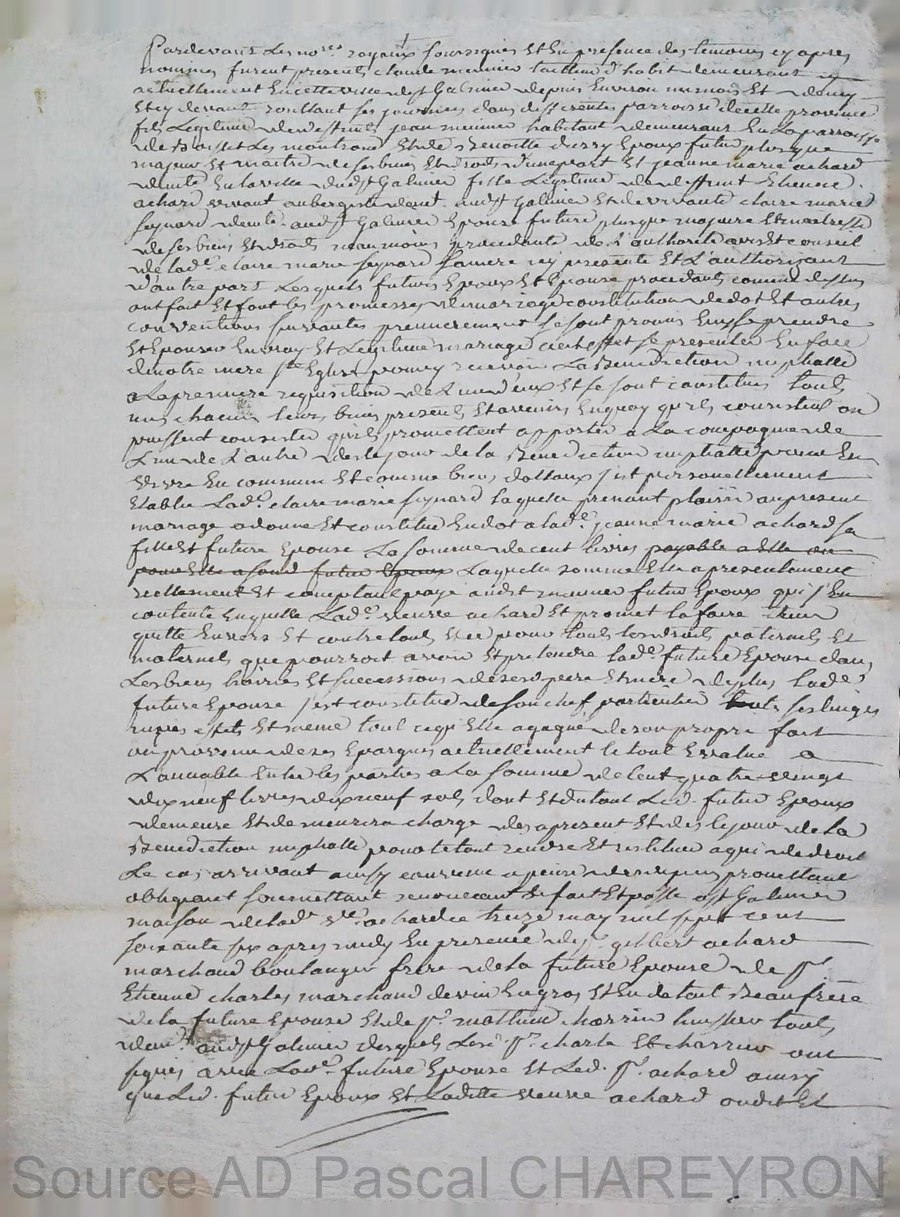 Pardevant les no.res royaux soussignés Et En presence des temoins cy apres
nommes furent presents claude meunier tailleur d'habit demeurant
actuellement En cette ville de st Galmier depuis Environ un mois Et demy
Et cy devant roullant ses journées dans differentes parroisse de cette province
fils Legitime de deffunt jean meunier habitant demeurant En La parroisse
de Boisset Les montrond Et de Benoitte Epoux futur plus que
majeur Et maitre de ses biens Et droits d'une part Et jeanne marie achard
dem.te En la ville dud. st Galmier fille Legitime de deffunt Etienne
achard vivant aubergiste dem.t aud. st Galmier Et de vivante claire marie
demte aud. st Galmier Epouse future plus que majeure Et maitresse
de ses biens Et droits neanmoins procedante de L'authorité avis Et conseil
de lad.e claire marie sa mere icy presente Et L'authorisant
d'autre part Lesquels futurs Epoux Et Epouse procedants comme dessus
ont fait Et font les promesses de mariage constitution de dot Et autres
conventions suivantes premierement Se sont promis Eux se prendre
Et Epouser En vray Et Legitime mariage a cet Effet se presenter En face
de notre mere ste Eglise pour y recevoir La Benediction nuptialle
a La premiere requisition de L'un d'eux Et se sont constitués touts
un chacun leurs biens presents Et avenirs En quoy qu'ils consistent ou
puissent consister qu'ils promettent apporter a La compagnie de
L'un de L'autre des le jour de la Benediction nuptialle pour En
vivre En commun Et comme biens dottaux s'est personnellement
Etablie Lad.e claire marie laquelle prenant plaisir au present
mariage a donné Et constitué En dot a lad.e jeanne marie achard sa
fille Et future Epouse La somme de cent livres payable a Elle ou
pour Elle a sond. futur Epoux Laquelle somme Elle a presentement
reellement Et comptant payé aud. meunier futur Epoux qui s'En
contente En quitte Lad.e veuve achard Et promet la faire tenir
quitte Envers Et contre touts Et ce pour touts les droits paternels Et
maternels que pourroit avoir Et pretendre lad.e future Epouse dans
Les biens hoiries Et successions de ses pere Et mere de plus Lad.e
future Epouse s'est constitué de son chef particulier touts ses linges
nipes effets Et meme tout ce qu'Elle a gagné de son propre fait
ou provenu de ses Epargnes actuellement le tout Evalué a
L'amiable Entre les parties a La somme de Cent quatre vingt
dix neuf livres dix neuf sols dont Et du tout Led. futur Epoux
demeure Et demeurera chargé des a present Et des le jour de la
Benediction nuptialle pour le tout rendre Et restituer a qui de droit
Le cas arrivant ainsy convenu a peine de depens promettant
obligeant soumettant renonceant &c fait Et passé a st Galmier
maison de lad.e v.e achard ce treize may mil sept cent
soixante six apres midy En presence de s.r gilbert achard
marchand boulanger frere de la future Epouse de s.r
Etienne charles marchand de vin En gros Et En detail Beaufrere
de la future Epouse Et de s.r mathieu huissier touts
dem.ts aud. st Galmier desquels Les s.rs charle Et ont
signés avec Lad.e future Epouse Et Led. s.r achard ainsy
que Led. futur Epoux Et Laditte veuve achard ont dit Et
Source AD Pascal CHAREYRON